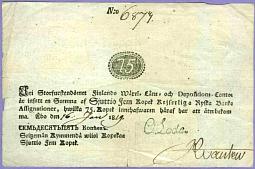 No 6879.
75
Uti Storfurstendömet Finlands Wäxel- Låne- och Depositions-Contor
är insatt en Summa af Sjuttio Fem Kopek
Assignationer, hwilka 75 Kopek innehafwaren häraf har att återbekom-
ma. Åbo den 16 1819.
СЕМЬДЕСЯТЪПЯТЬ Копѣекъ.
Seitzemän Kymmendä wiisi Kopekaa
Sjuttio Fem Kopek.